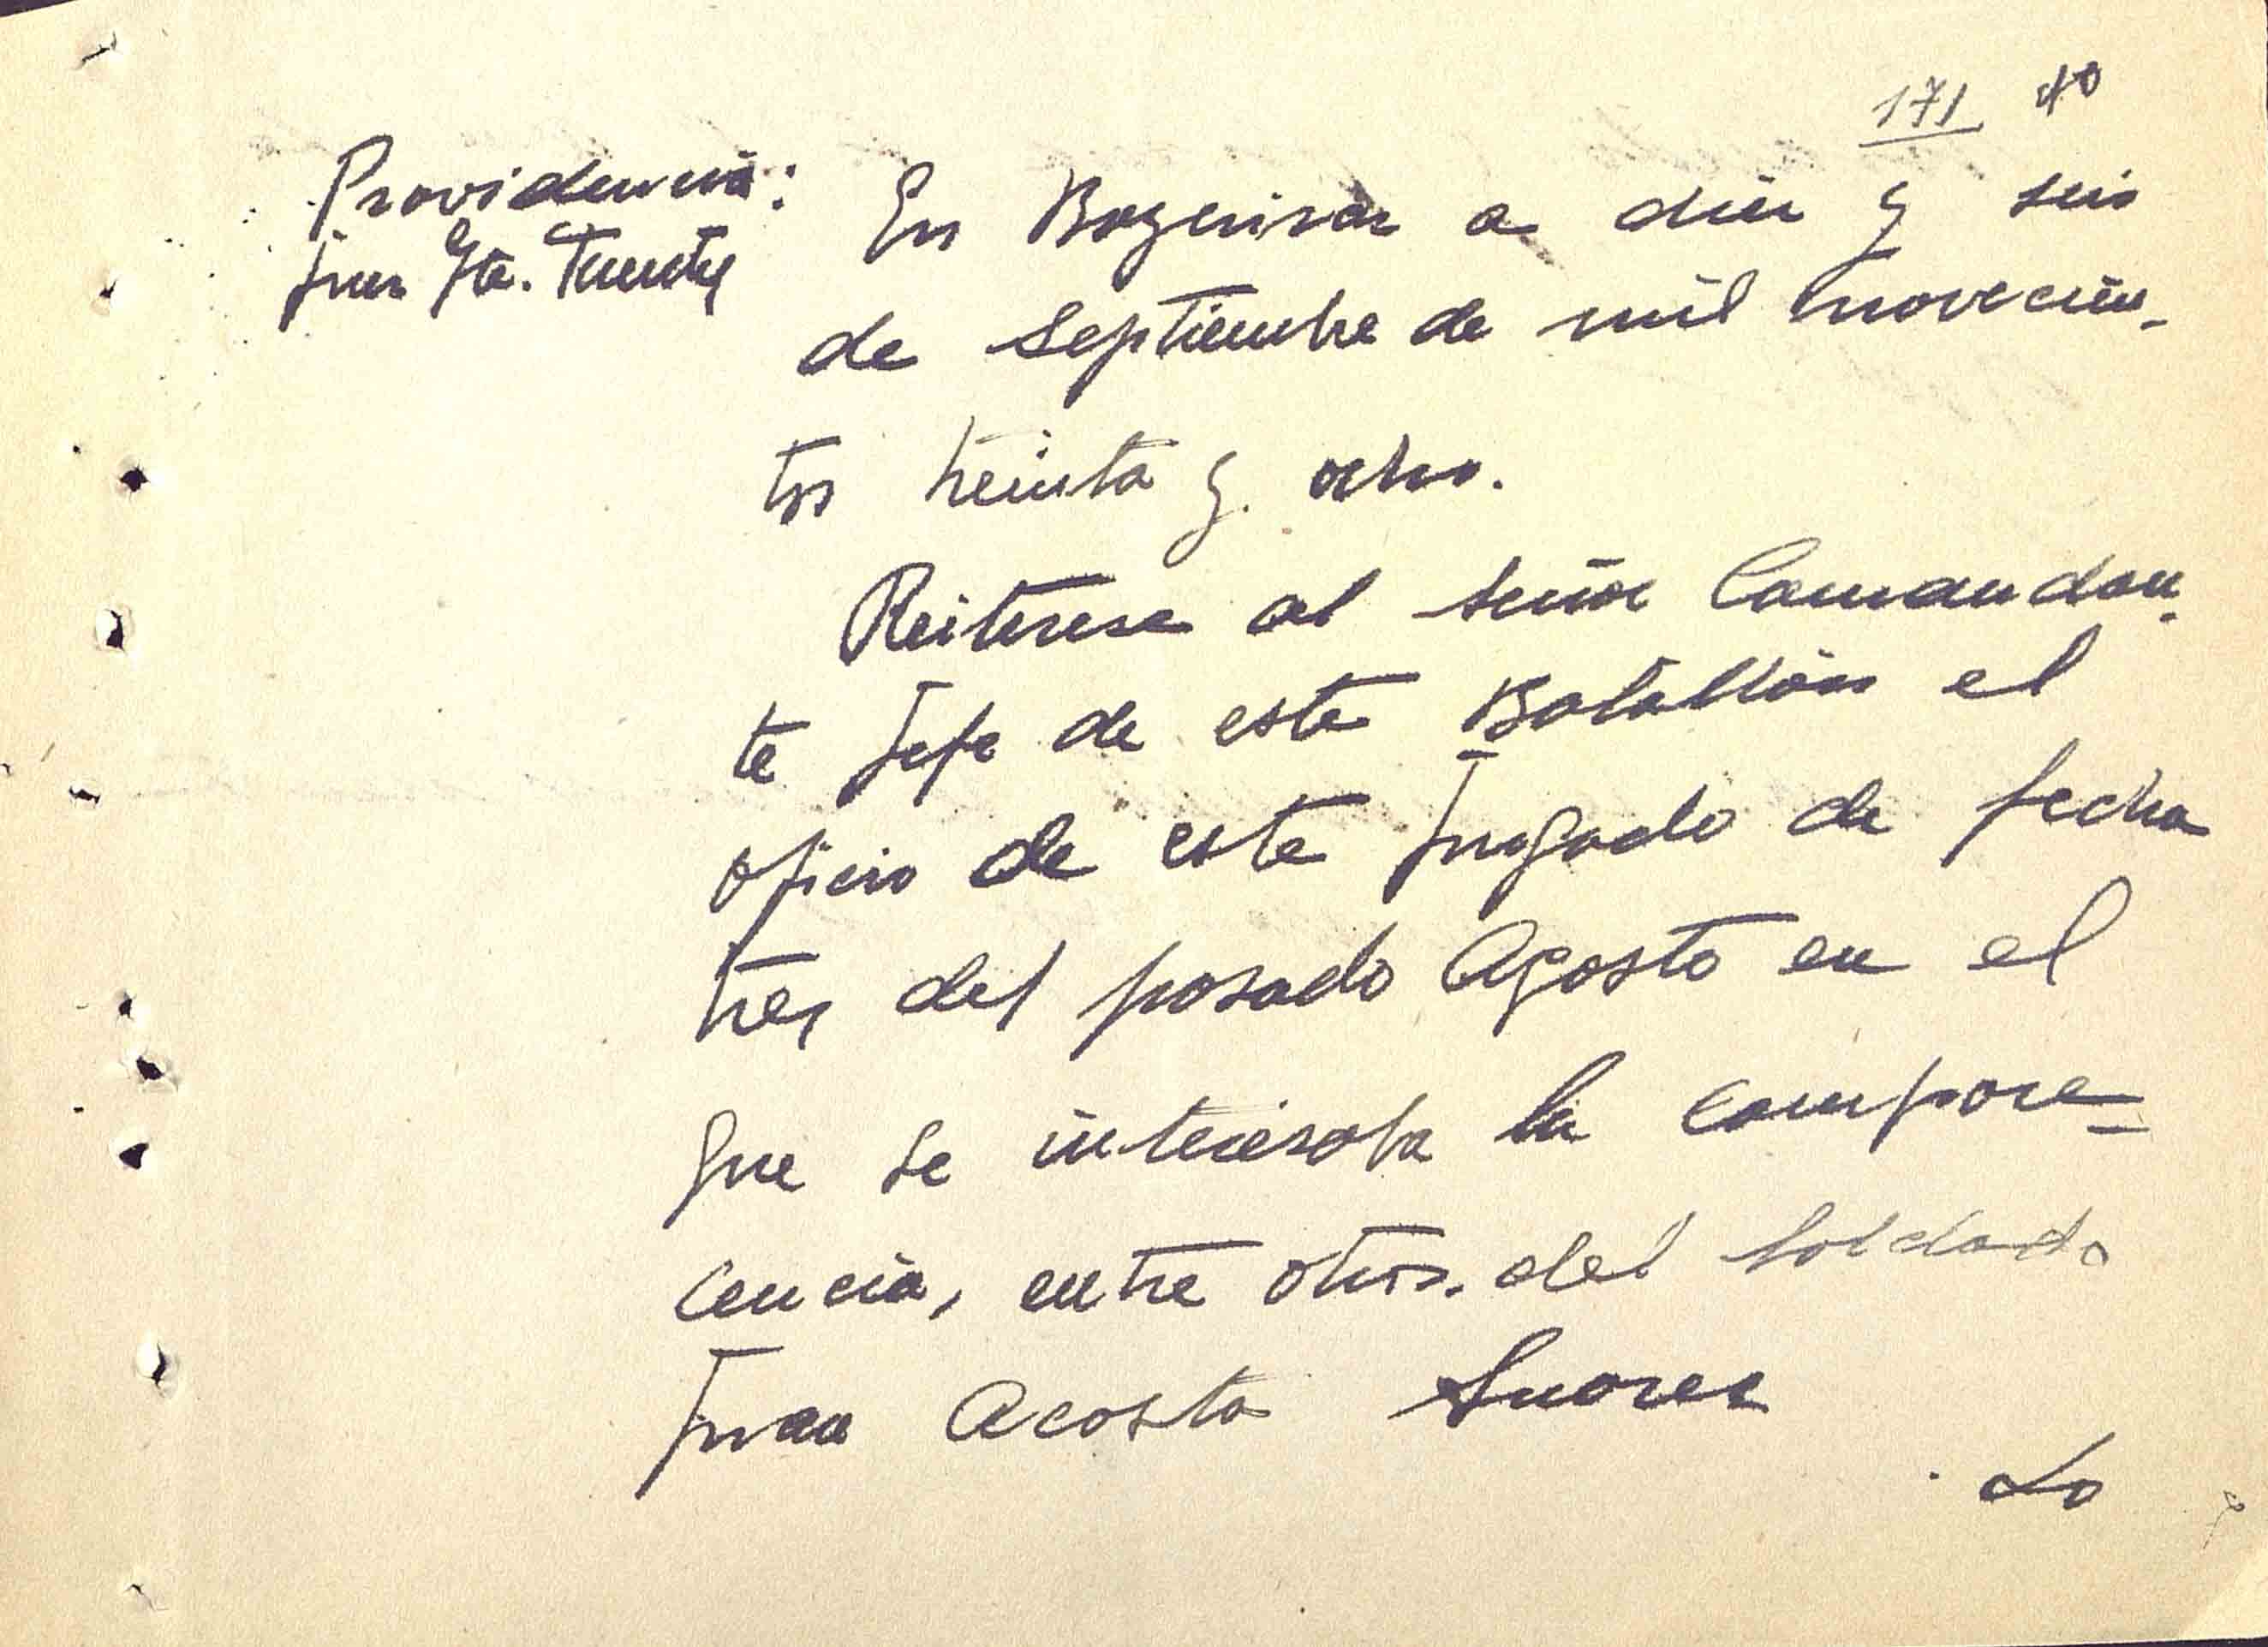 171
Providencia: En a diez y seis
Juez
de Septiembre de mil novecien-
tos treinta y ocho.
Reiterese al señor Comandan-
te Jefe de este Batallón el
oficio de este Juzgado de fecha
tres del pasado Agosto en el
que se interesaba la compare-
cencia, entre otros, del soldado
Juan Acosta Suarez
Lo